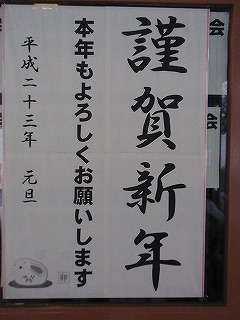 謹賀新年
本年もよろしくお願いします
平成二十三年 元旦
卯
会
会